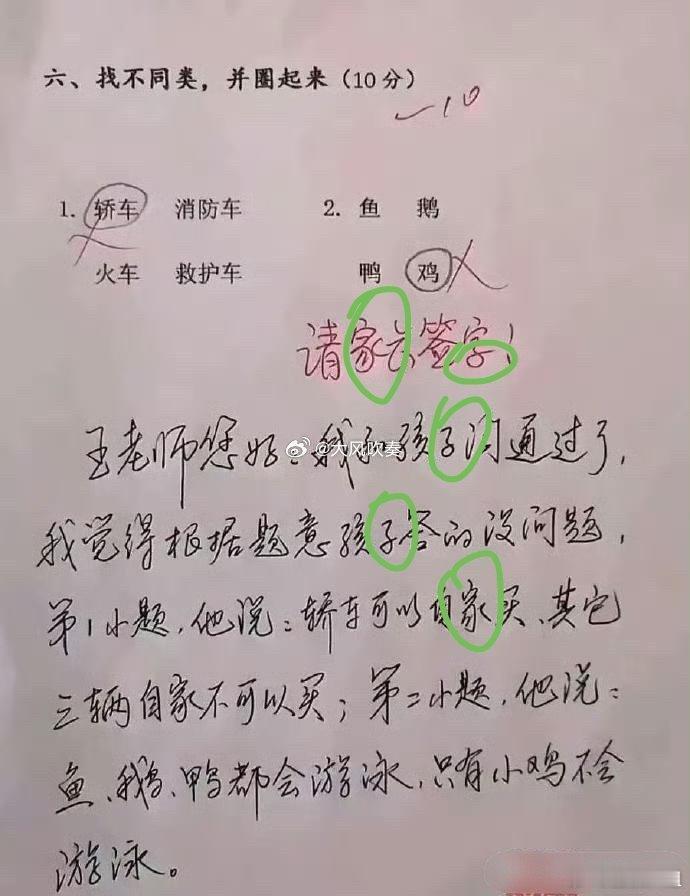 六、找不同类，并圈起来（10分）
-10
1. 轿车 消防车 2. 鱼 鹅
火车 救护车 鸭 鸡
请家长签字！
王老师您好：我和孩子沟通过了，
@大风吹奏
我觉得根据题意孩子答的没问题，
第1小题，他说：轿车可以自家买、其它
三辆自家不可以买；第二小题，他说：
鱼、鹅、鸭都会游泳，只有小鸡不会
游泳。